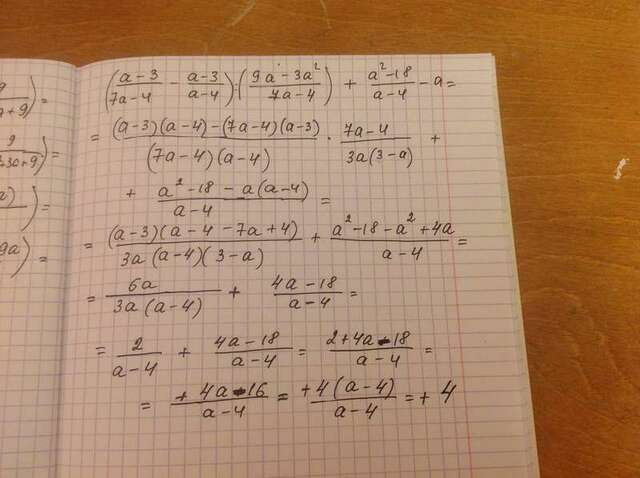 ((a-3)/(7a-4) - (a-3)/(a-4)) : ((9a-3a²)/(7a-4)) + (a²-18)/(a-4) - a =
= ((a-3)(a-4)-(7a-4)(a-3))/((7a-4)(a-4)) · (7a-4)/(3a(3-a)) +
+ (a²-18-a(a-4))/(a-4) =
= ((a-3)(a-4-7a+4))/(3a(a-4)(3-a)) + (a²-18-a²+4a)/(a-4) =
= 6a/(3a(a-4)) + (4a-18)/(a-4) =
= 2/(a-4) + (4a-18)/(a-4) = (2+4a-18)/(a-4) =
= (+4a-16)/(a-4) = (+4(a-4))/(a-4) = +4